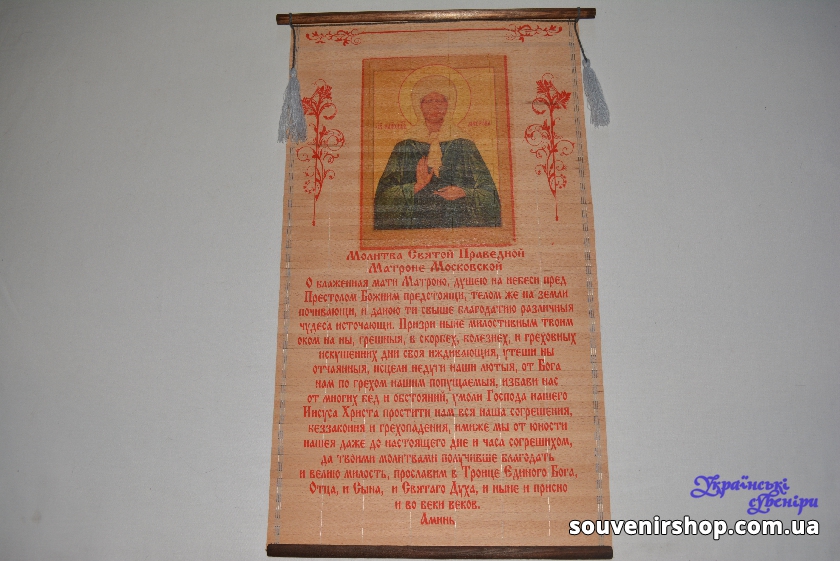 Молитва Святой Праведной
Матроне Московской
О блаженная мати Матроно, душею на небеси пред
Престолом Божиим предстоящи, телом же на земли
почивающи, и даною ти свыше благодатию различныя
чудеса источающи. Призри ныне милостивным твоим
оком на ны, грешныя, в скорбех, болезнех, и греховных
искушениих дни своя иждивающия, утеши ны
отчаянныя, исцели недуги наши лютыя, от Бога
нам по грехом нашим попущаемыя, избави нас
от многих бед и обстояний, умоли Господа нашего
Иисуса Христа простити нам вся наша согрешения,
беззакония и грехопадения, имиже мы от юности
нашея даже до настоящего дне и часа согрешихом,
да твоими молитвами получивше благодать
и велию милость, прославим в Троице Единого Бога,
Отца, и Сына, и Святаго Духа, и ныне и присно
и во веки веков.
Аминь
Українські
сувеніри
souvenirshop.com.ua